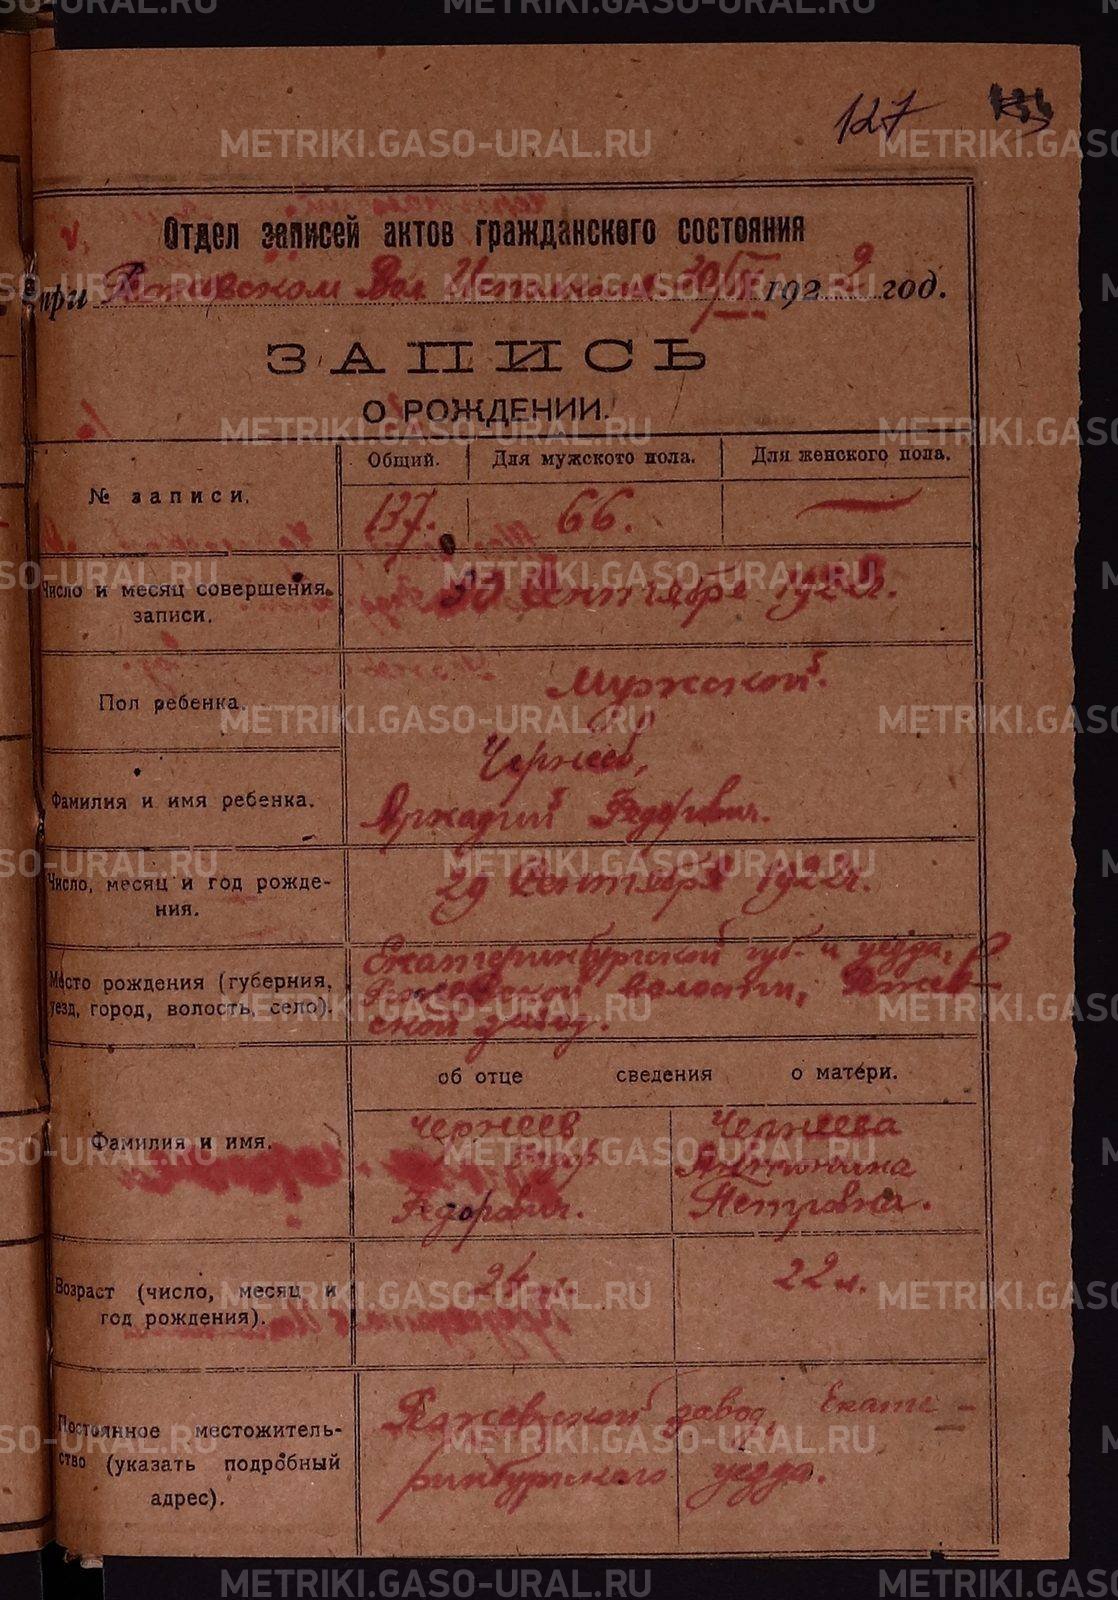 127
Отдел записей актов гражданского состояния
при Режевском Вол Исполкоме 30/IX 1922 год.
ЗАПИСЬ
О РОЖДЕНИИ.
Общий. Для мужского пола. Для женского пола.
№ записи.
137. 66. —
Число и месяц совершения
записи.
30 Сентября 1922г.
Пол ребенка.
Мужской.
Фамилия и имя ребенка.
Чернеев,
Аркадий Федорович.
Число, месяц и год рожде-
ния.
29 Сентября 1922г.
Место рождения (губерния,
уезд, город, волость, село).
Екатеринбургской губ. и уезда,
Режевской волости, Режев-
ской завод.
об отце сведения о матери.
Фамилия и имя.
Чернеев
Федор
Федорович.
Чернеева
Антонина
Петровна.
Возраст (число, месяц и
год рождения).
24 л.
22 л.
Постоянное местожитель-
ство (указать подробный
адрес).
Режевской завод, Екате-
ринбургского уезда.
METRIKI.GASO-URAL.RU